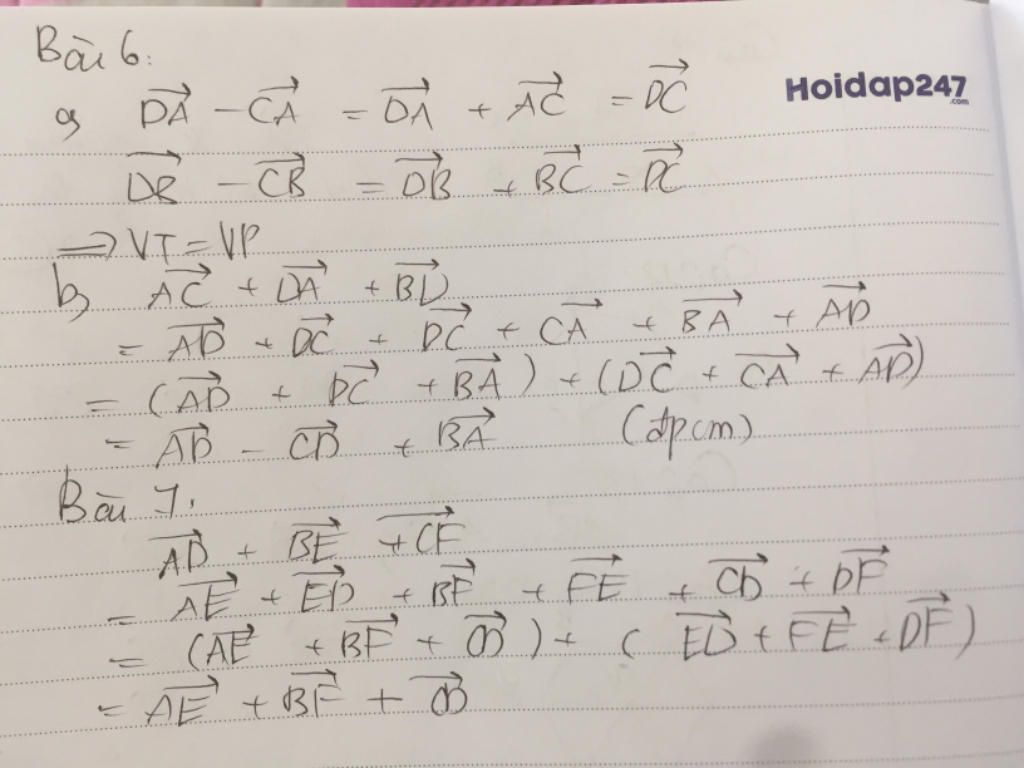 Bài 6:
Hoidap247
.com
a, DA - CA = DA + AC = DC
DB - CB = DB + BC = DC
⇒ VT = VP
b, AC + DA + BD
= AD + DC + DC + CA + BA + AD
= (AD + DC + BA) + (DC + CA + AD)
= AD - CD + BA (đpcm)
Bài 7:
AD + BE + CF
= AE + ED + BF + FE + CD + DF
= (AE + BF + CD) + (ED + FE + DF)
= AE + BF + CD